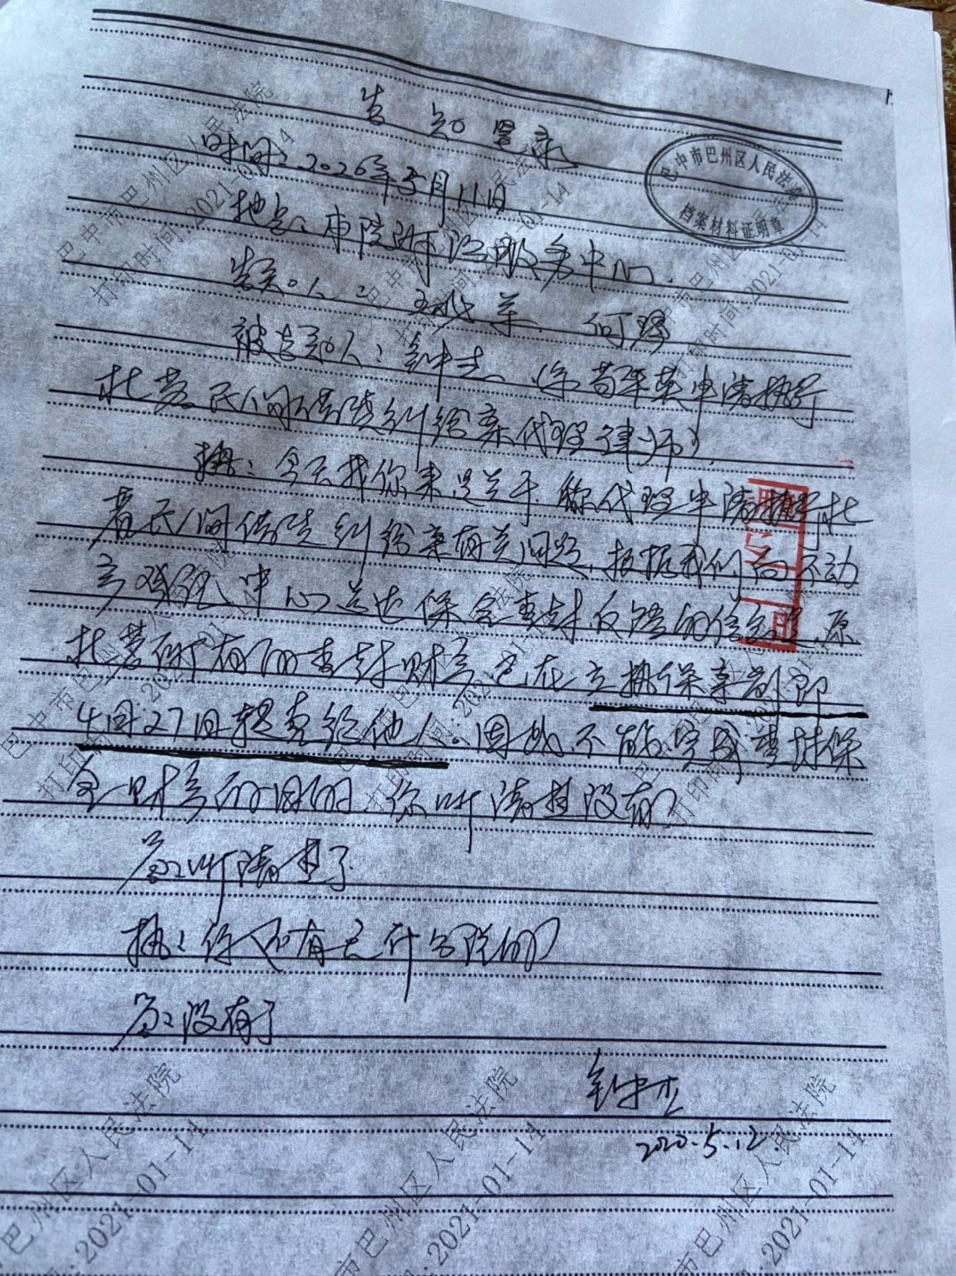 告知笔录
时间：2020年5月11日
地点：本院诉讼服务中心.
告知人：  何
被告知人：  (系 申请执行
杜 民间借贷纠纷案代理律师)
执：今天找你来是关于你代理申请执行杜
民间借贷纠纷案有关问题，根据我们向不动
产登记中心送达保全查封反馈的信息，原
杜 所有的查封财产已在立执保案前即
4月27日 给他人。因此不能完成查封保
全财产的目的，你听清楚没有？
答：听清楚了
执：你还有无什么说的？
答：没有了
2020.5.12.
巴中市巴州区人民法院
档案材料证明章
巴中市巴州区人民法院
打印时间:2021-01-14